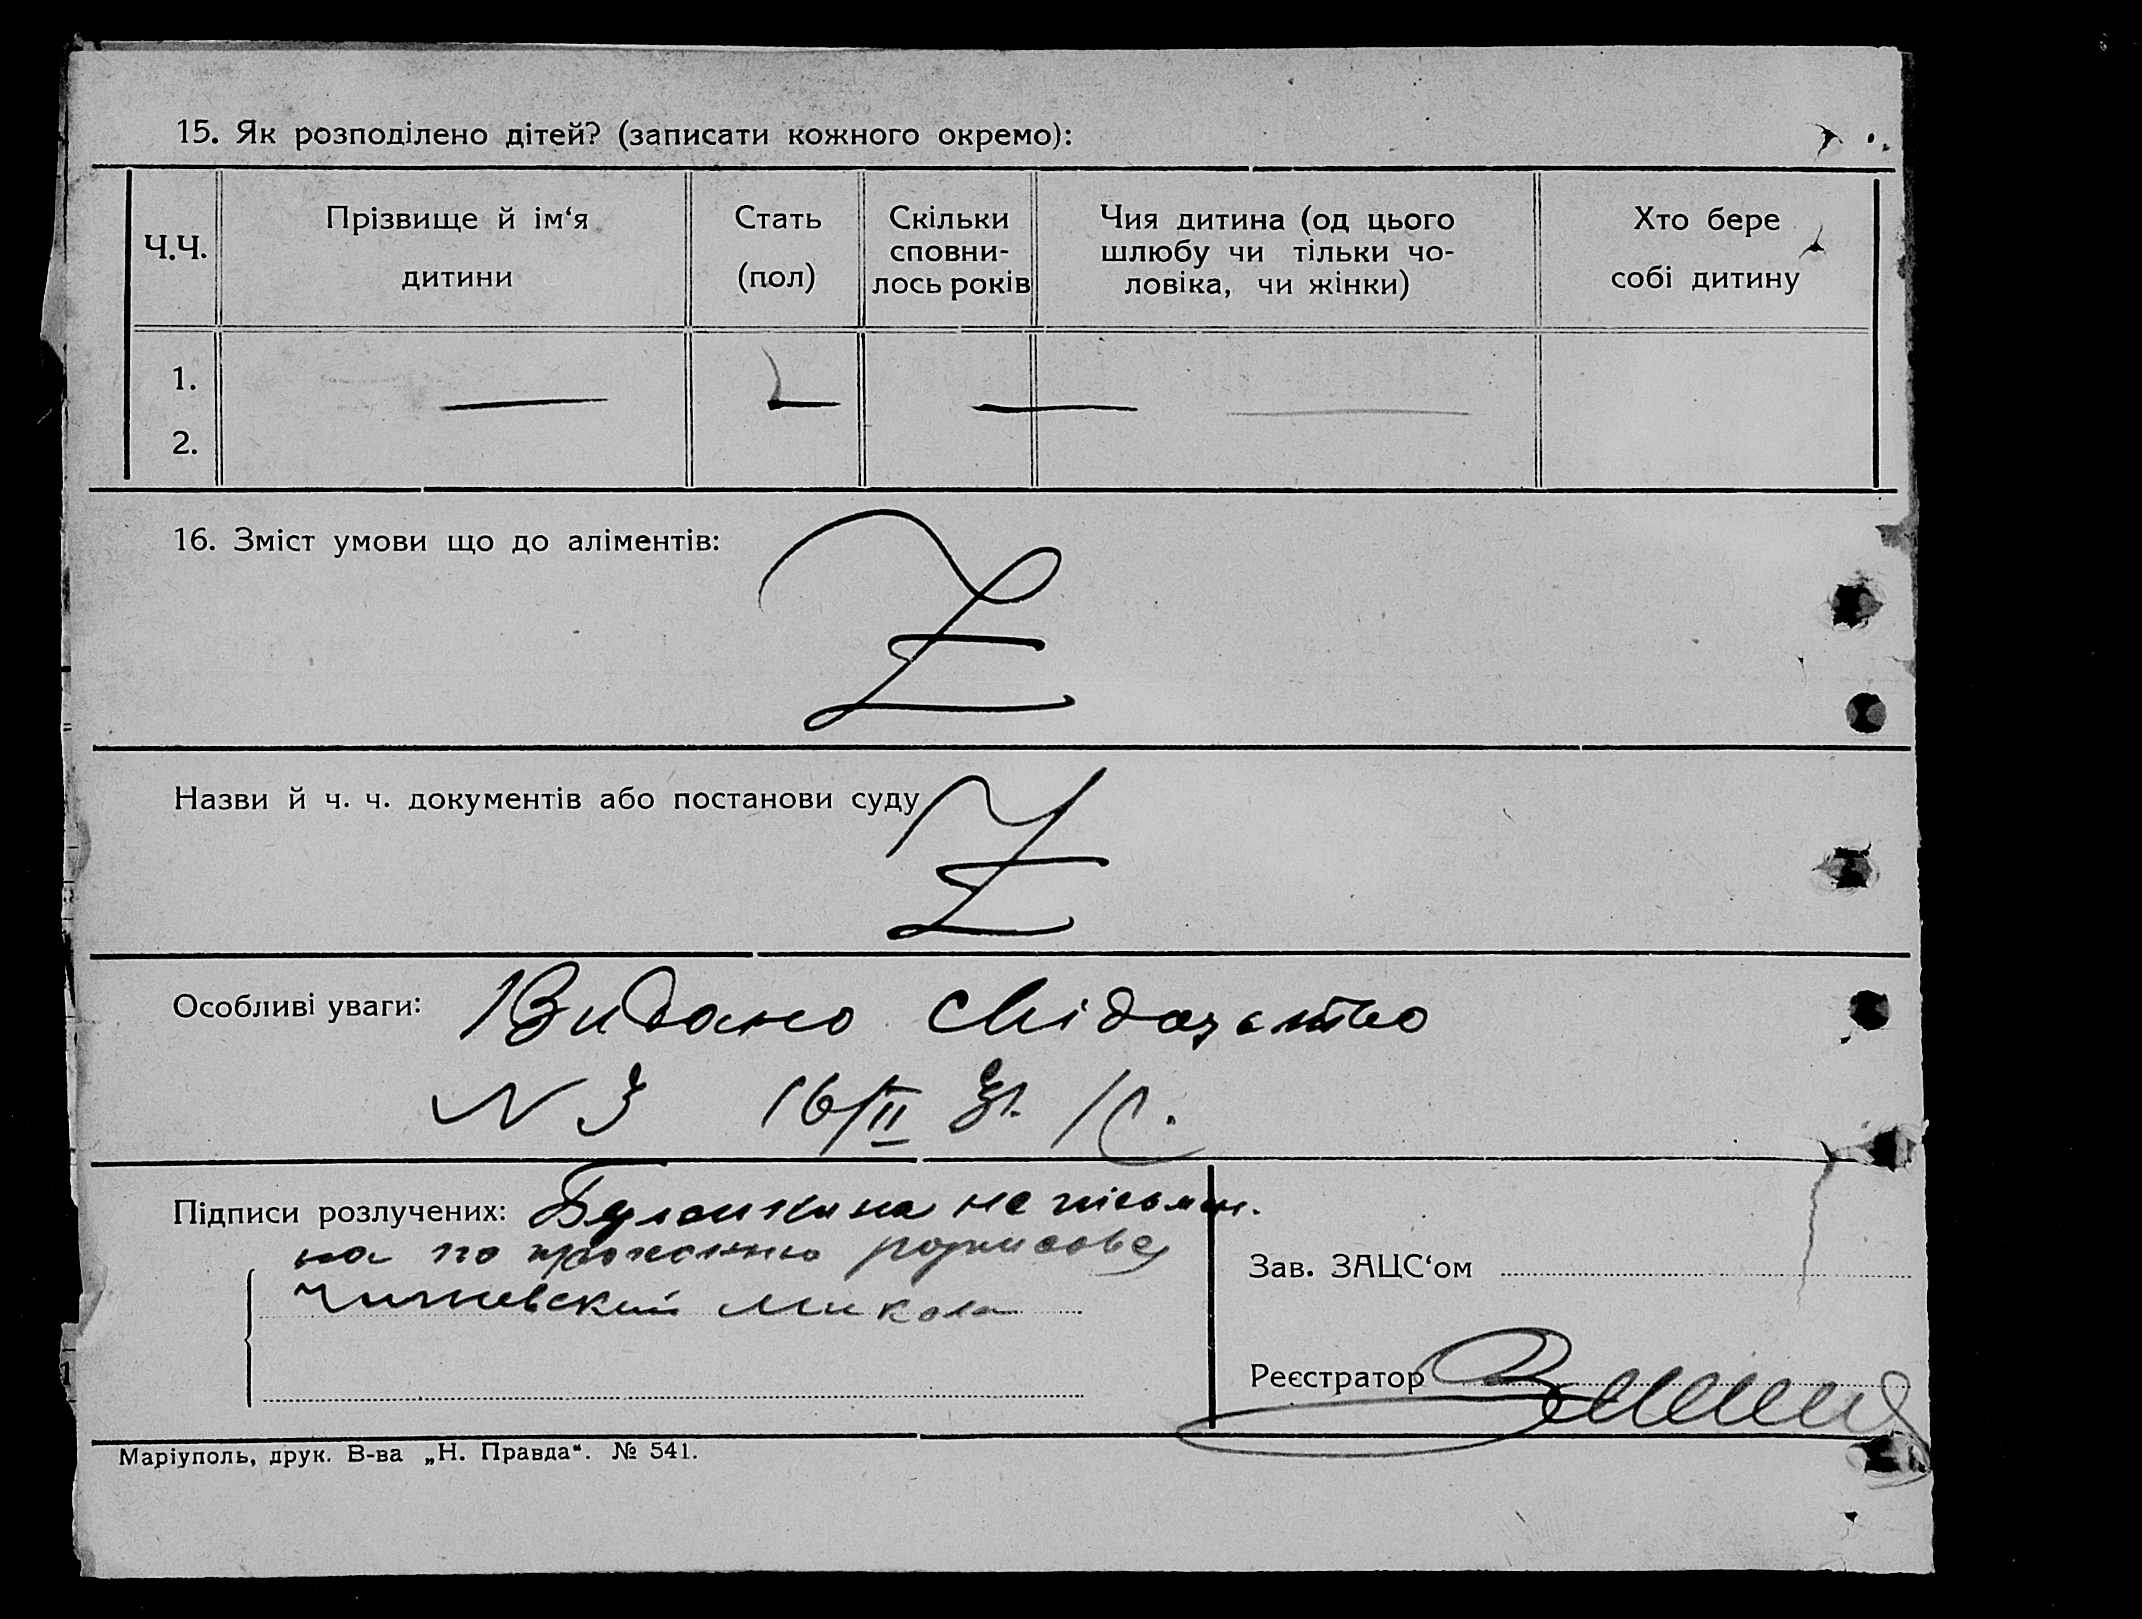 15. Як розподілено дітей? (записати кожного окремо):
Ч.Ч.
Прізвище й ім‘я
дитини
Стать
(пол)
Скільки
сповни-
лось років
Чия дитина (од цього
шлюбу чи тільки чо-
ловіка, чи жінки)
Хто бере
собі дитину
1.
2.
16. Зміст умови що до аліментів:
Назви й ч. ч. документів або постанови суду
Особливі уваги: Видано свідоцтво
N 3 16/II 31.
Підписи розлучених: не письмен.
на по
Микола
Зав. ЗАЦС‘ом
Реєстратор
Маріуполь, друк. В-ва „Н. Правда“. № 541.